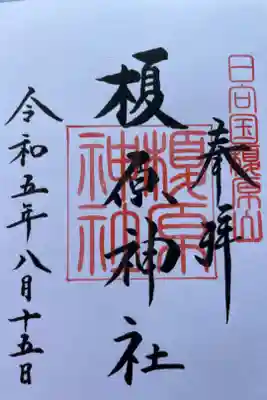 奉拝
日向国榎原山
榎原神社
榎原神社
令和五年八月十五日